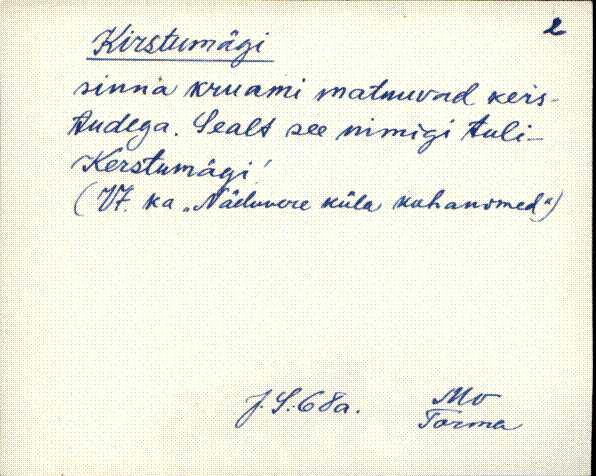 2
Kirstumägi
sinna kruami matnuvad keis-
tudega. Sealt see nimigi tuli-
Kerstumägi!
(Vt. ka „Näduvere küla kohanimed")
J. S. 68a. Mo
Torma